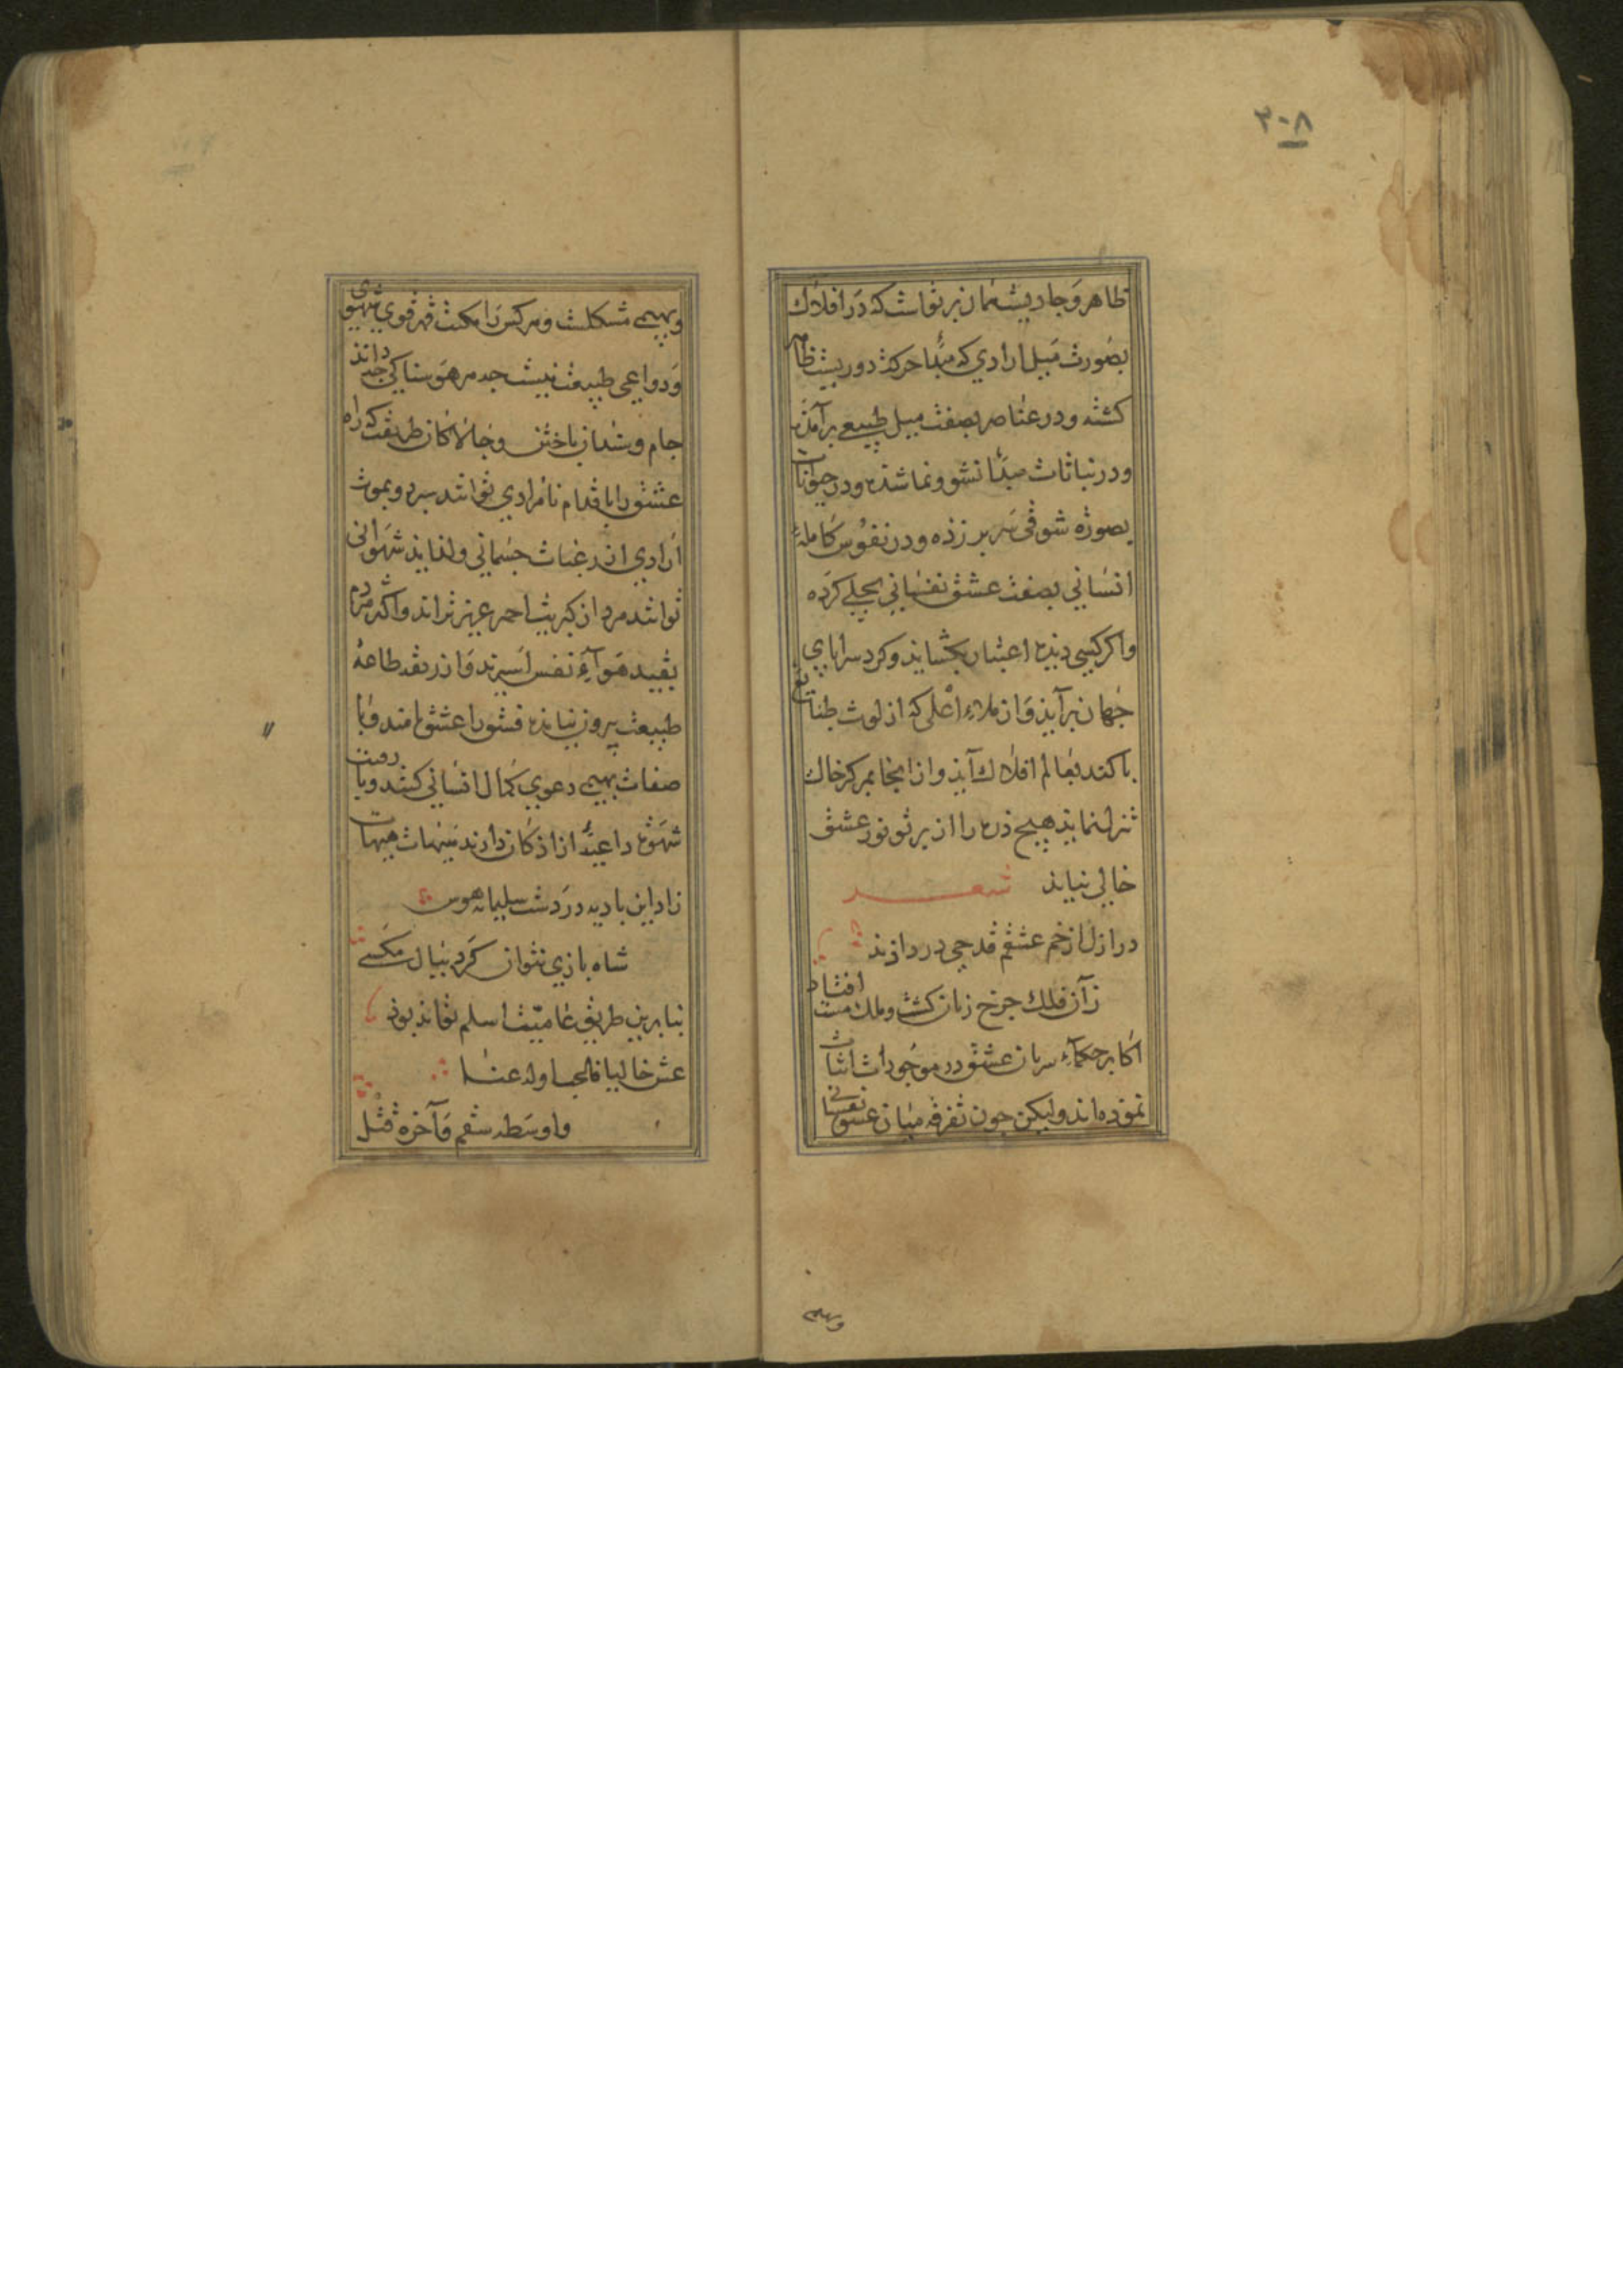 ٣٠٨
ظاهر و جاریست همان پرتواست که در افلاك
بصورت میل ارادی که مبدأ حرکة دوریست ظاهر
کشته و در عناصر بصفت میل طبیعی برآمذه
و در نباتات مبدأ نشو و نما شذه و در حیوانات
بصورة شوقی سر بر زذه و در نفوس کاملهٔ
انسانی بصفت عشق نفسانی تجلی کرده
و اکر کسی دیذهٔ اعتبار بکشاید و کرد سراپای
جهان برآیذ و از ملاء اعلی که از لوث طبایع
پاکند بعالم افلاك آیذ و از انجا بمرکز خاك
تنزل نمایذ هیچ ذره را از پرتو نور عشق
خالی نیابذ شعر
در ازل از خم عشقم قدحی در دادند
زان فلك چرخ زنان کشت و ملك مست افتاد
اکابر حکماء سریان عشق در موجودات اثبات
نموده اند و لیکن چون تفرقه میان عشق نفسانی
وبهیمی
وبهیمی مشکلست و هر کس را مکنت قهر قوی شهوی
و دواعی طبیعت نیست چه هر هوسناکی چه داند
جام و سندان باختن و چالاکان طریقت که راه
عشق را با قدام نامرادی توانند سپرد و بموت
ارادی از رغبات جسمانی و لذایذ شهوانی
توانند مرد از کبریت احمر عزیزتراند و اکثر مردم
بقید هوآء نفس اسیرند و از ربقهٔ طاعة
طبیعت بیرون نیایذ فسق را عشق نامند و با
صفات بهیمی دعوی کمال انسانی کنند و با رعونت
شهوة داعیهٔ آزاذکان دارند هیهات هیهات
زاد این بادیه در دشت سلیمان هوس
شاه بازی نتوان کرد ببال مکسی
بنا برین طریق عامیت اسلم تواند بود
عش خالیا فالحب اوله عنا
و اوسطه سقم و آخره قتل